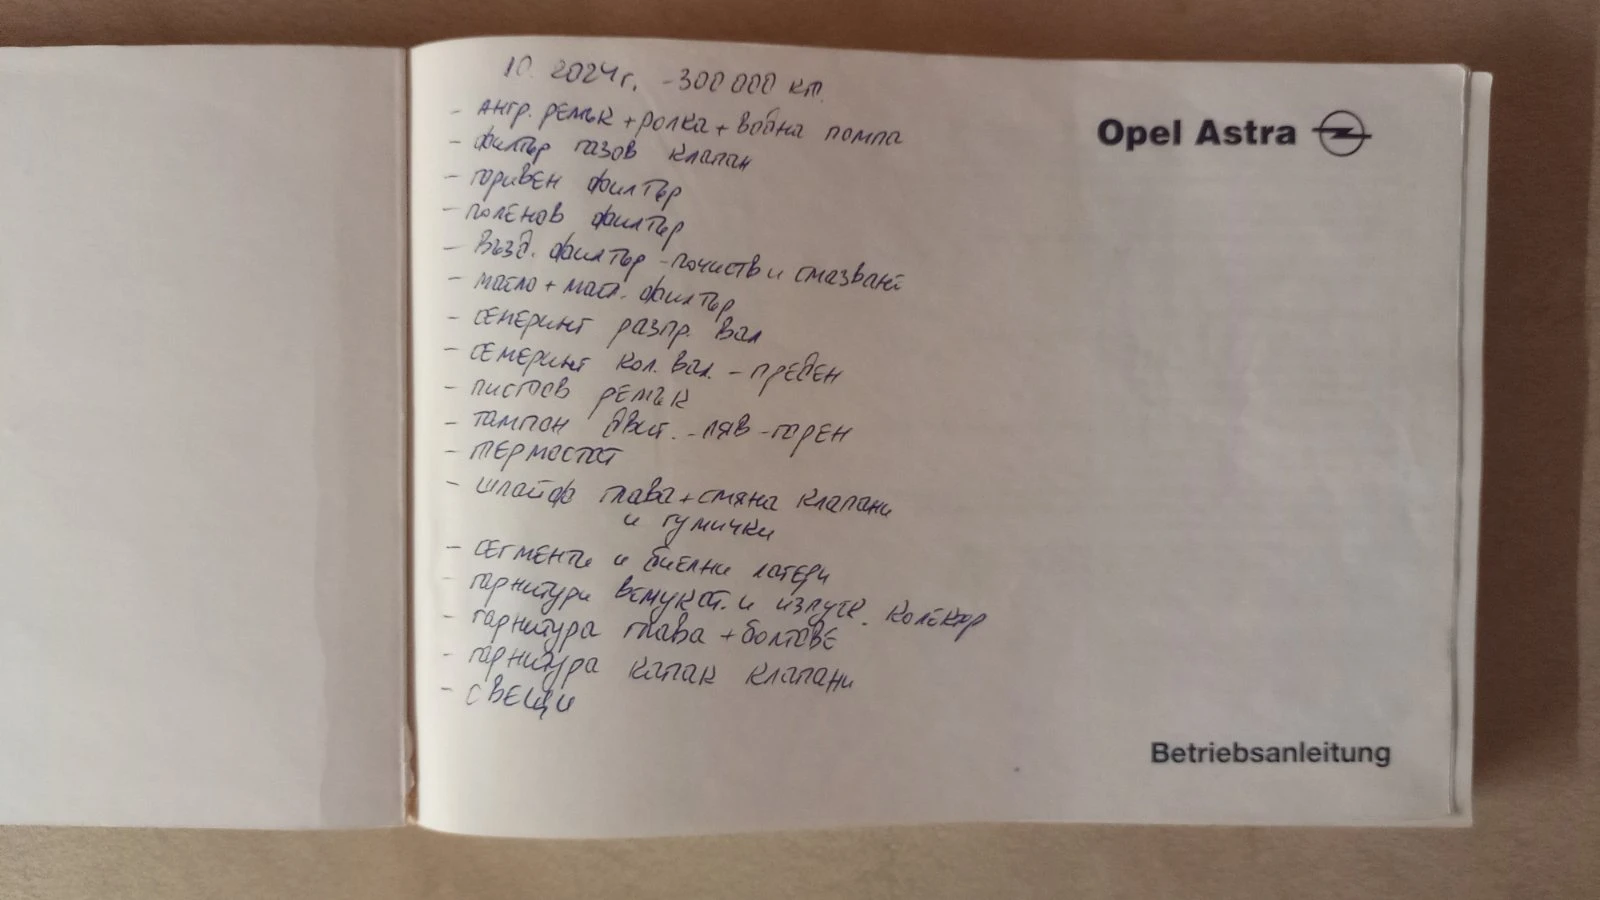 10. 2024г. - 300 000 км.
- ангр. ремък + ролка + водна помпа
- филтър газов клапан
- горивен филтър
- поленов филтър
- възд. филтър - почиств и смазване
- масло + масл. филтър
- семеринг разпр. вал
- семеринг кол. вал. - преден
- пистов ремък
- тампон двиг. - ляв - горен
- термостат
- шлайф глава + смяна клапани
и гумички
- сегменти и биелни лагери
- гарнитури всмукат. и изпуск. колектор
- гарнитура глава + болтове
- гарнитура капак клапани
- свещи
Opel Astra
Betriebsanleitung